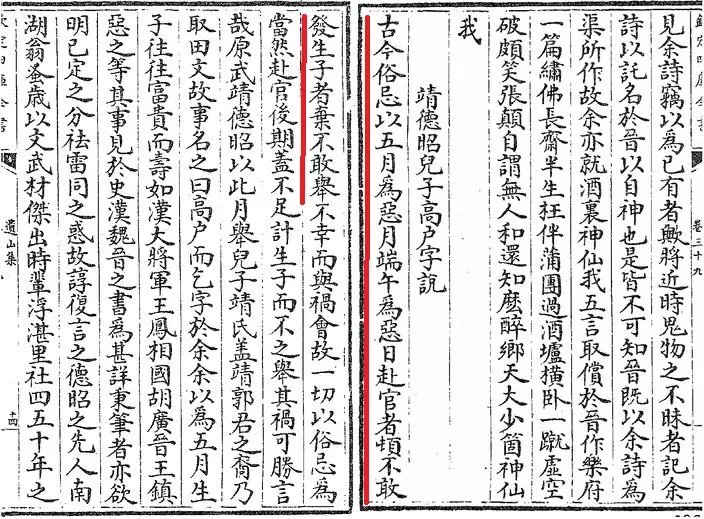 卷三十九
見余詩竊以為已有者歟將近時鬼物之不昧者記余
詩以託名於晉以自神也是皆不可知晉既以余詩為
渠所作故余亦就酒裏神仙我五言取償於晉作樂府
一篇繡佛長齋半生枉伴蒲團過酒壚横卧一蹴虛空
破頗笑張顛自謂無人和還知麽醉鄉天大少箇神仙
我
靖德昭兒子高户字説
古今俗忌以五月為惡月端午為惡日赴官者頓不敢
發生子者棄不敢舉不幸而與禍會故一切以俗忌為
當然赴官後期蓋不足計生子而不之舉其禍可勝言
哉原武靖德昭以此月舉兒子靖氏蓋靖郭君之裔乃
取田文故事名之曰高户而乞字於余余以為五月生
子往往富貴而壽如漢大將軍王鳳相國胡廣晉王鎮
惡之等其事見於史漢魏晉之書為甚詳秉筆者亦欲
明已定之分袪雷同之惑故諄復言之德昭之先人南
湖翁蚤歳以文武材傑出時輩浮湛里社四五十年之
定四庫全書
遺山集
十四